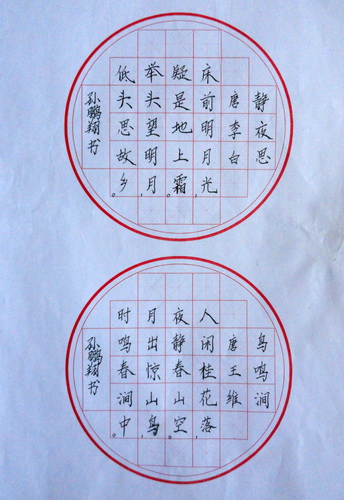 静夜思
唐李白
床前明月光，
疑是地上霜。
举头望明月，
低头思故乡。
孙鹏翔书
鸟鸣涧
唐王维
人闲桂花落，
夜静春山空。
月出惊山鸟，
时鸣春涧中。
孙鹏翔书